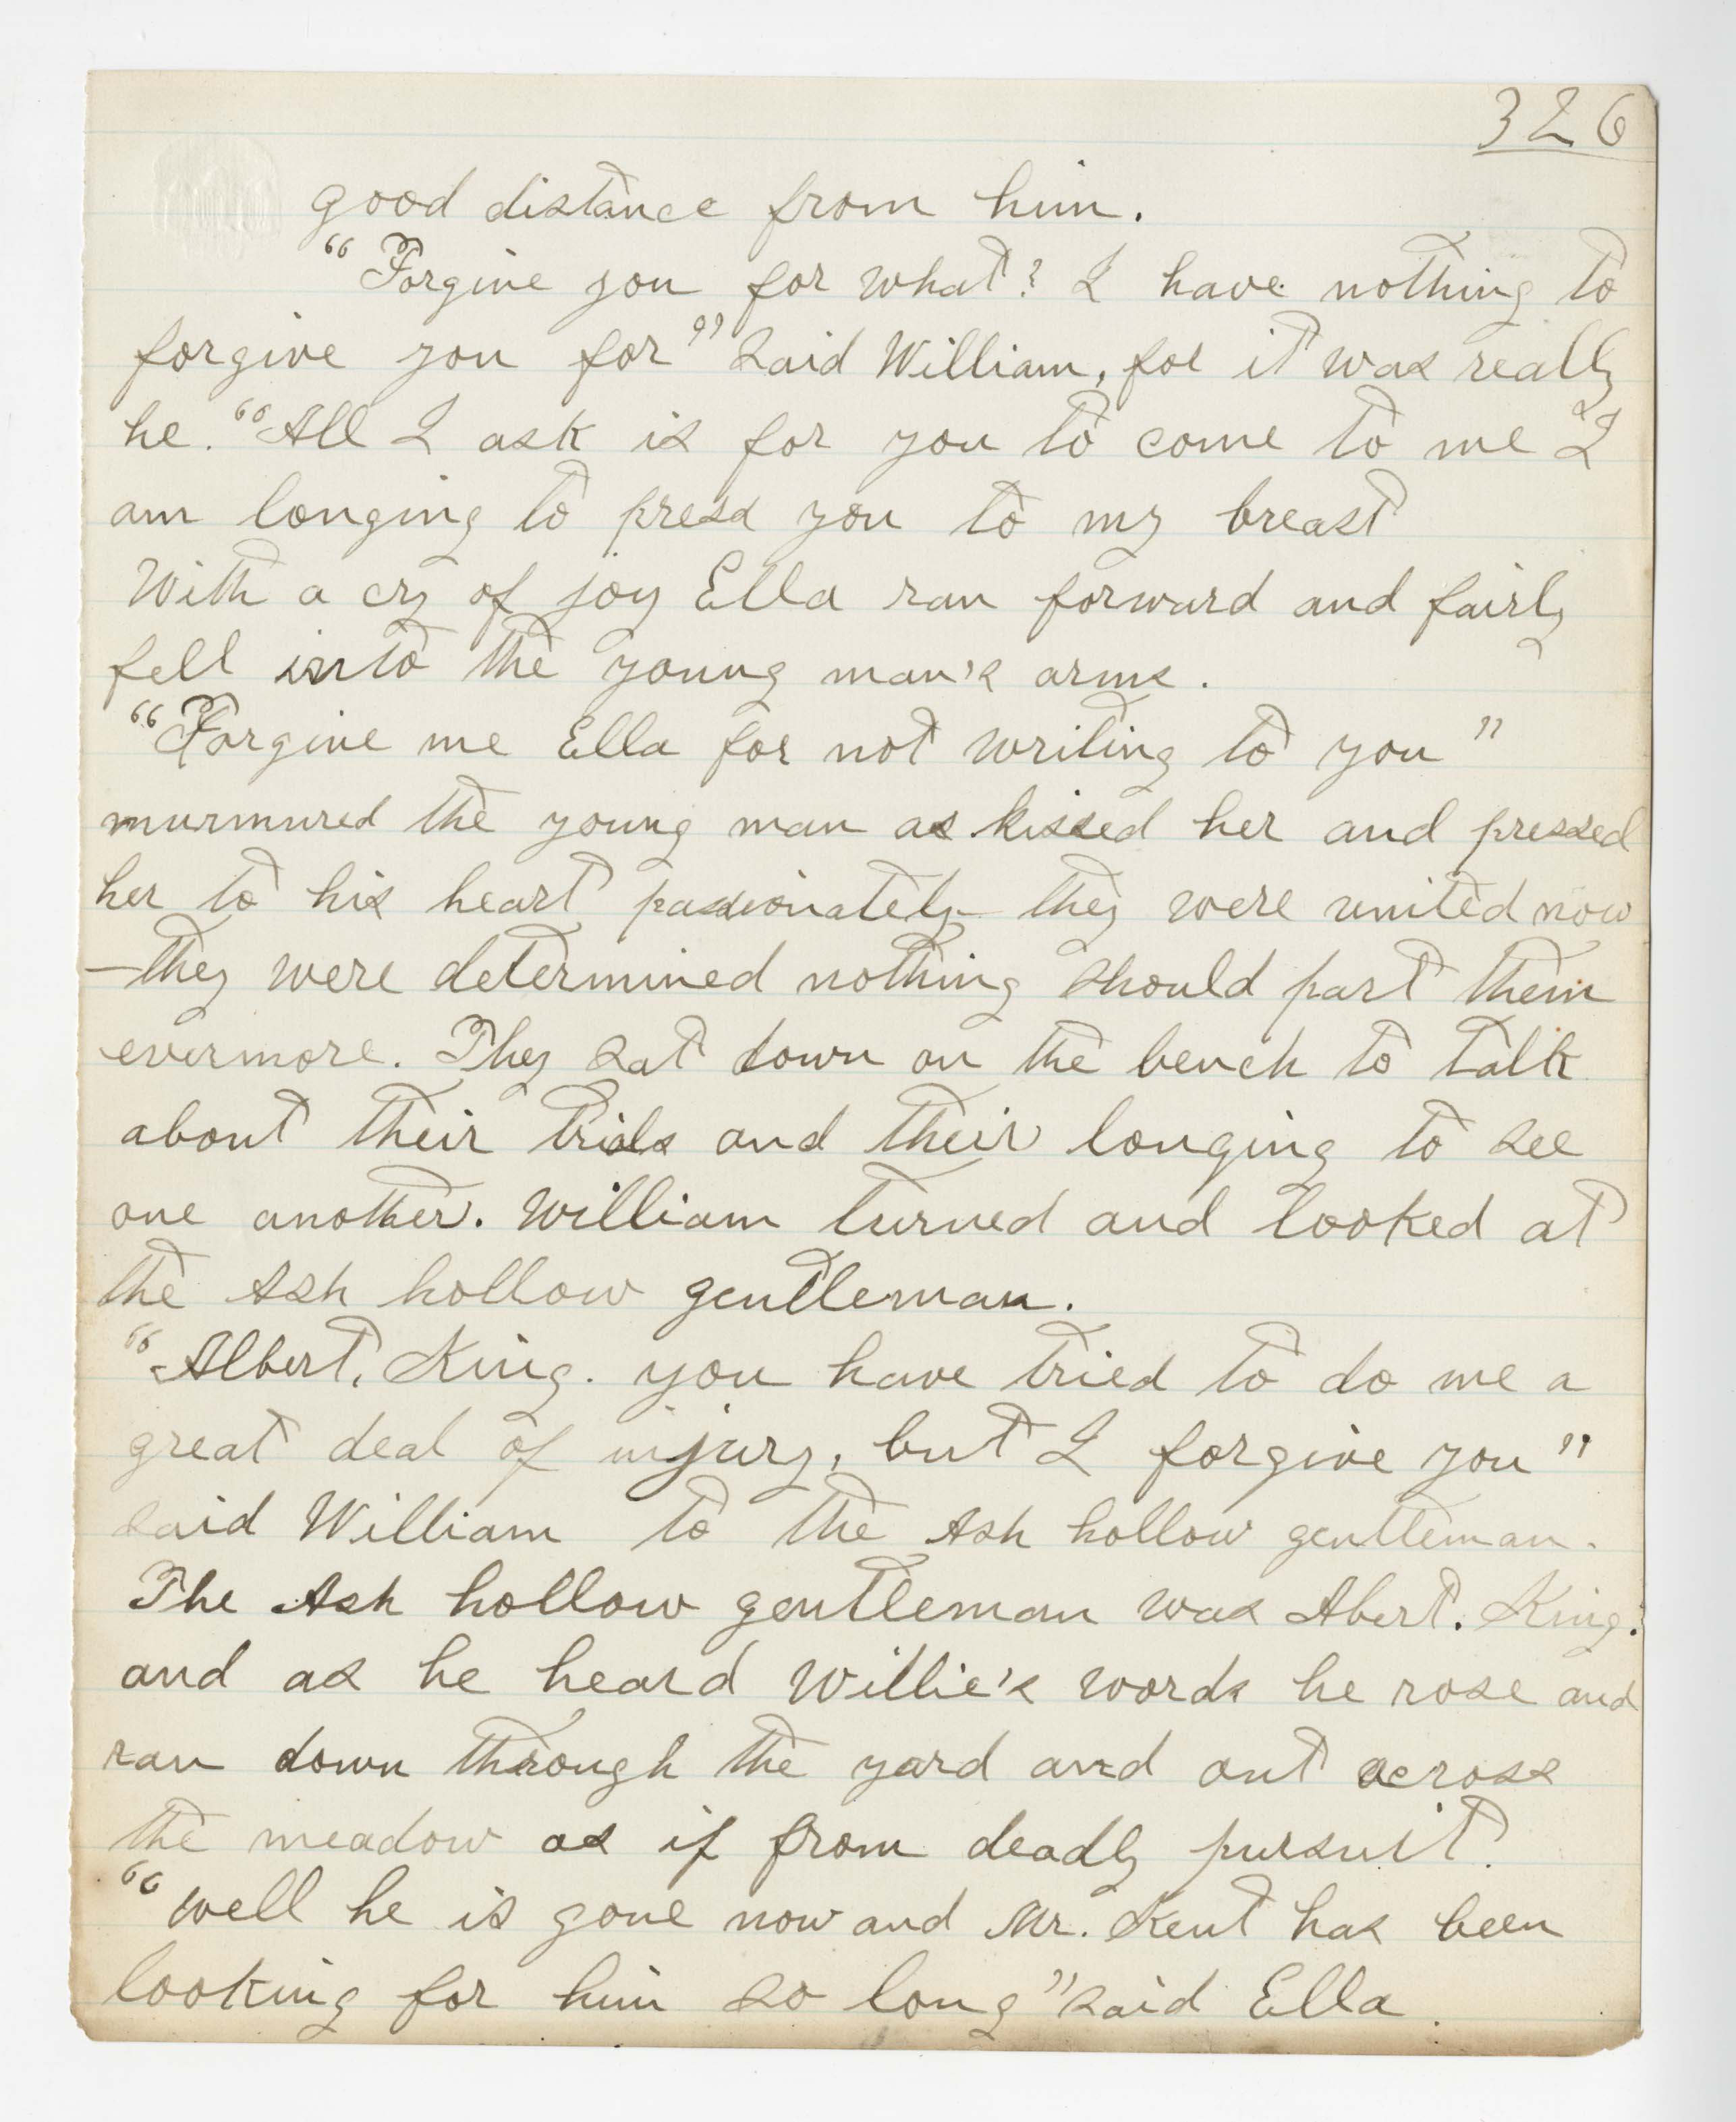 326
good distance from him.
“Forgive you for what? I have nothing to
forgive you for” said William, for it was really
he. “All I ask is for you to come to me I
am longing to press you to my breast
With a cry of joy Ella ran forward and fairly
fell into the young man's arms.
“Forgive me Ella for not writing to you”
murmured the young man as kissed her and pressed
her to his heart passionately they were united now
—they were determined nothing should part them
evermore. They sat down on the bench to talk
about their trials and their longing to see
one another. William turned and looked at
the Ash hollow gentleman.
“Albert. King. you have tried to do me a
great deal of injury, but I forgive you”
said William to the Ash hollow gentleman.
The Ash hollow gentleman was Abert. King.
and as he heard Willie's words he rose and
ran down through the yard and out across
the meadow as if from deadly pursuit.
“well he is gone now and Mr. Kent has been
looking for him so long” said Ella.